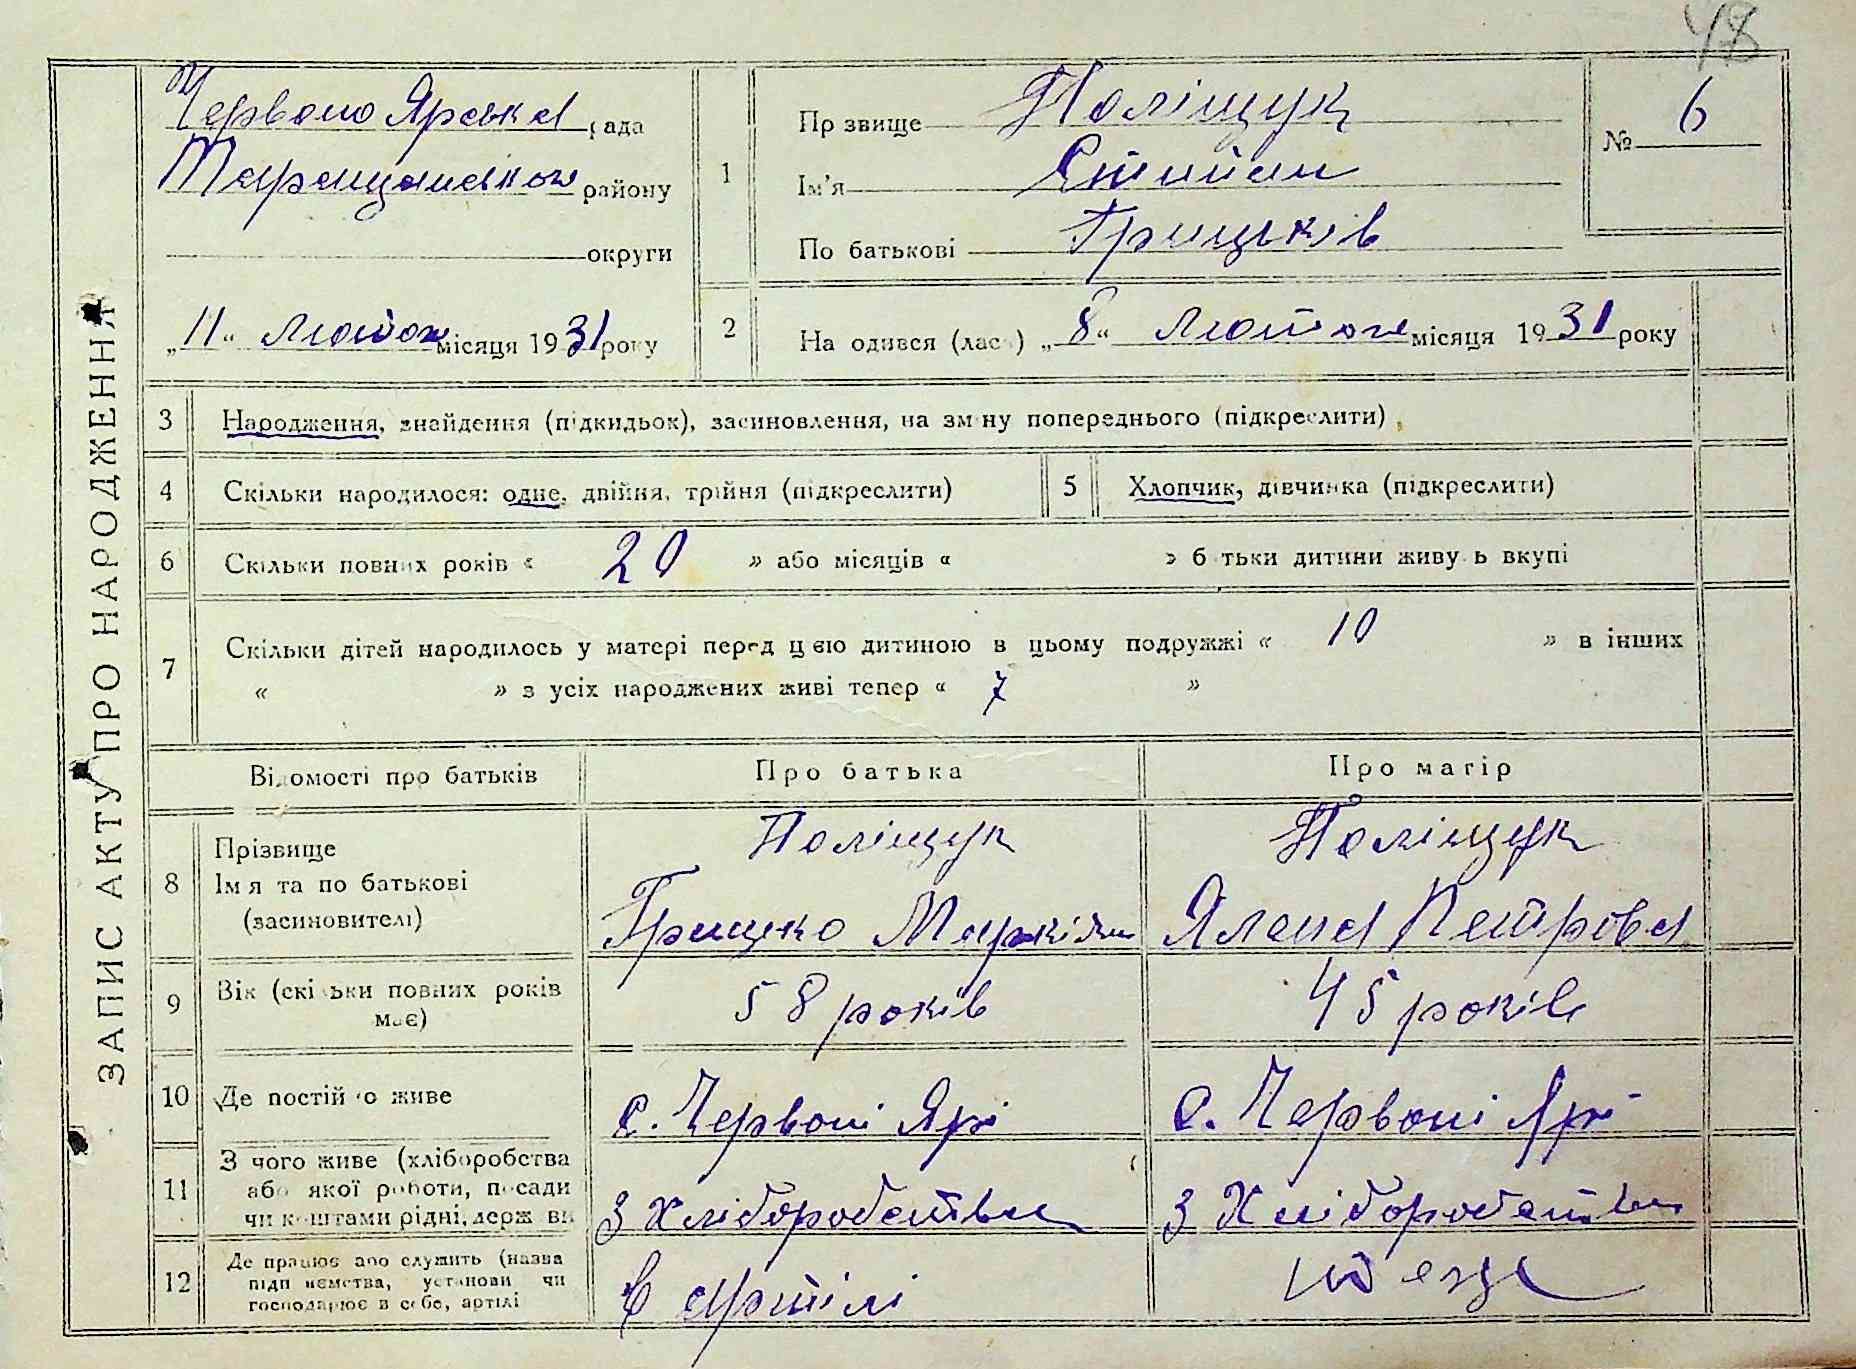 48
ЗАПИС АКТУ ПРО НАРОДЖЕННЯ
Червоно Ярська рада
Таращанського району
округи
„11“ Лютого місяця 1931 року
1
Прізвище Поліщук
Ім'я Степан
По батькові Грицьків
№ 6
2
Народився (лась) „8“ Лютого місяця 1931 року
3 Народження, знайдення (підкидьок), засиновлення, на зміну попереднього (підкреслити)
4 Скільки народилося: одне, двійня, трійня (підкреслити)
5 Хлопчик, дівчинка (підкреслити)
6 Скільки повних років « 20 » або місяців « » батьки дитини живуть вкупі
7 Скільки дітей народилось у матері перед цією дитиною в цьому подружжі « 10 » в інших
« » з усіх народжених живі тепер « 7 »
Відомості про батьків Про батька Про матір
8 Прізвище
Імя та по батькові
(засиновителі)
Поліщук
Грицько
Поліщук
Ялена Петрова
9 Вік (скільки повних років
має)
58 років
45 років
10 Де постійно живе
с. Червоні Ярі
с. Червоні Ярі
11 З чого живе (хліборобства
або якої роботи, посади
чи коштами рідні, держави
З Хліборобства
З Хліборобства
12 Де працює або служить (назва
підприємства, установи чи
господарює в себе, артілі
В артілі